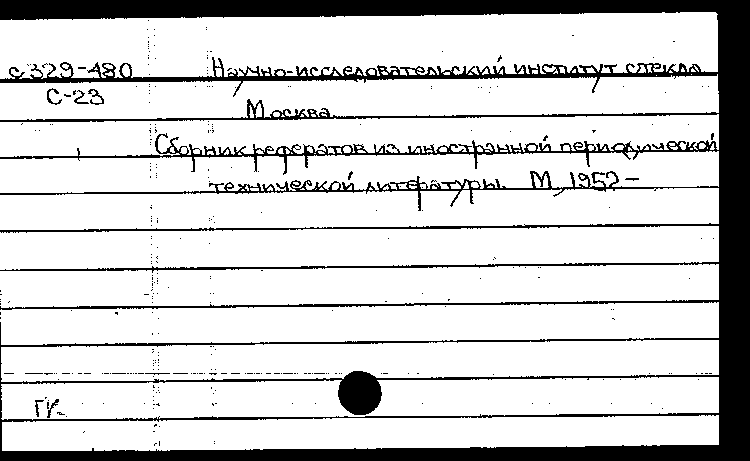 с329-480 Научно-исследовательский институт стекла
С-23 Москва.
Сборник рефератов из иностранной периодической
технической литературы. М., 1952 –